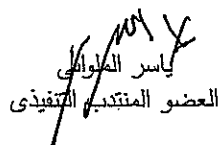 ياسر الملوانى
العضو المنتدب التنفيذى